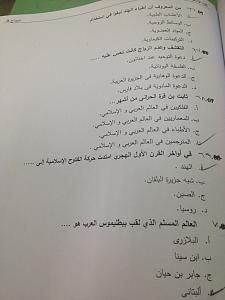 من المعروف أن أطباء الهند نبغوا في استخدام
أ. الأعشاب الطبية.
ب. الوسائط الروحية.
ج. المواد العضوية.
د. التركيبات الكيماوية.
التقشف وعدم الزواج كانت تحض عليه ....
دعوة التوحيد عند أخناتون.
ب. الفلسفة اليونانية.
ج. الدعوة الوهابية في الجزيرة العربية.
د. الدعوة المانوية في بلاد فارس.
ثابت بن قرة الحراني من أشهر...
أ. الفلكيين في العالم العربي و الإسلامي.
ب. المعماريين في العالم العربي و الإسلامي.
ج. الأطباء في العالم العربي و الإسلامي.
المترجمين في العالم العربي و الإسلامي.
في أواخر القرن الأول الهجري امتدت حركة الفتوح الإسلامية إلى .....
الهند.
ب. شبه جزيرة البلقان.
ج. الصين.
د. روسيا.
٧ العالم المسلم الذي لقب ببطليموس العرب هو ....
أ. البلاذرى
ب. ابن سينا
ج. جابر بن حيان
البتاني